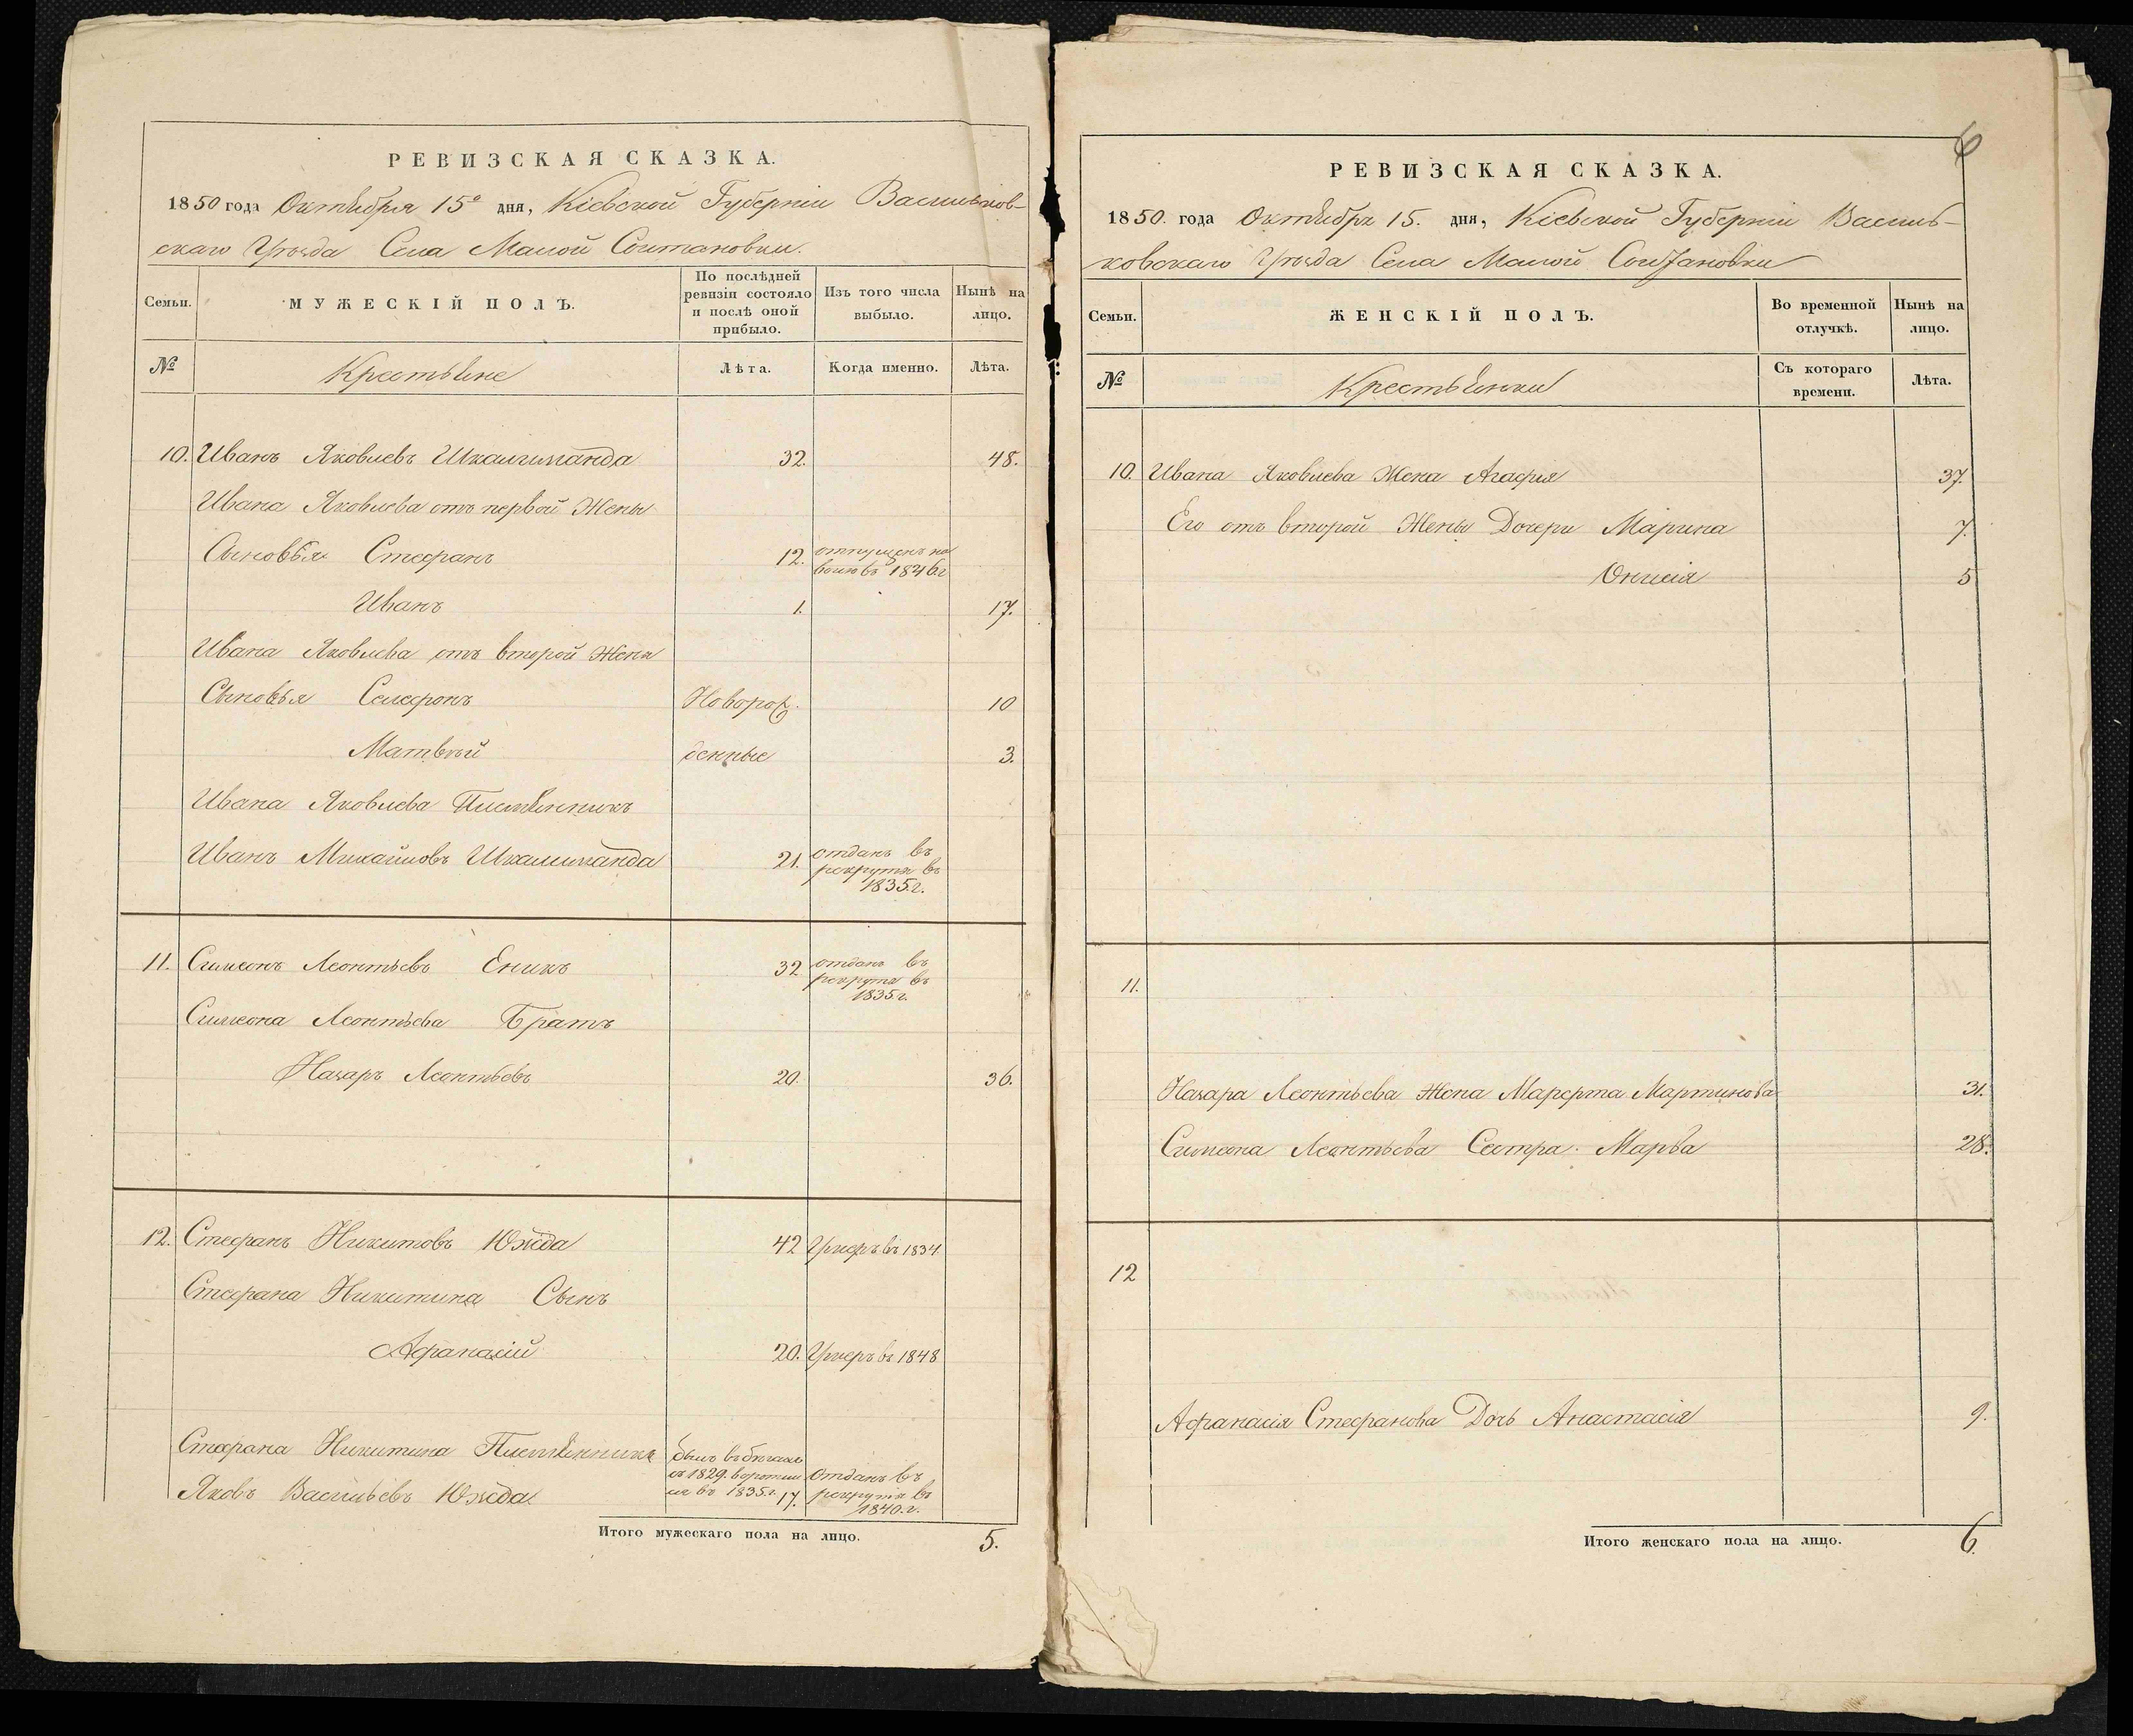 РЕВИЗСКАЯ СКАЗКА.
1850 года Октября 15º дня, Кіевской Губерніи Васильков-
скаго Уѣзда Села Малой Солтановки.
Семьи.
МУЖЕСКІЙ ПОЛЪ.
По послѣдней ревизіи состояло и послѣ оной прибыло.
Изъ того числа выбыло.
Нынѣ на лицо.
№
Крестьяне
Лѣта.
Когда именно.
Лѣта.
10. Иванъ Яковлевъ 32. 48.
Ивана Яковлева отъ первой Жены
Сыновья Стефанъ 12. отпущенъ на
волю въ 1846г
Иванъ 1. 17.
Ивана Яковлева отъ второй Жены
Сыновья Селефонъ Новорож 10
Матвѣй денные 3.
Ивана Яковлева Племянникъ
Иванъ Михайловъ 21. отданъ въ
рекрута въ
1835г.
11. Симеонъ Леонтьевъ Еникъ 32 отданъ въ
рекрута въ
1835г.
Симеона Леонтьева Братъ
Назаръ Леонтьевъ 20. 36.
12. Стефанъ Никитовъ Южда 42 Умеръ въ 1834
Стефана Никитина Сынъ
Афанасій 20. Умеръ въ 1848
Стефана Никитина Племянникъ
Яковъ Васильевъ Южда.
былъ въ бѣгахъ
съ 1829. воротил
ся въ 1835.г. 17.
отданъ въ
рекрута въ
1840.г.
Итого мужескаго пола на лицо. 5.
6
РЕВИЗСКАЯ СКАЗКА.
1850. года Октября 15. дня, Кіевской Губерніи Василь-
ковскаго Уѣзда Села Малой Солтановки
Семьи.
ЖЕНСКІЙ ПОЛЪ.
Во временной отлучкѣ.
Нынѣ на лицо.
№
Крестьянки
Съ котораго времени.
Лѣта.
10. Ивана Яковлева Жена Агафия 37.
Его отъ второй Жены Дочери Марина 7.
Онисія 5
11.
Назара Леонтьева Жена Марфта Мартинова 31.
Симеона Леонтьева Сестра Марѳа 28.
12
Афанасія Стефанова Дочь Анастасія 9.
Итого женскаго пола на лицо. 6.